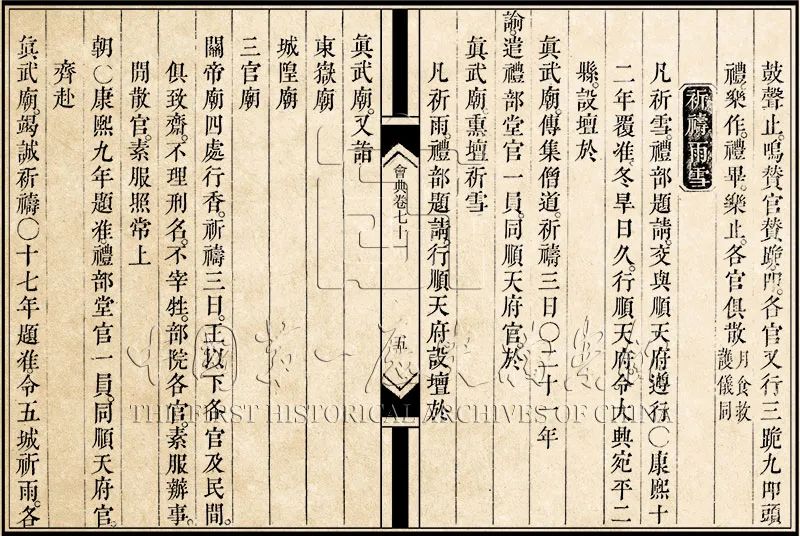 鼓聲止。鳴贊官贊跪叩。各官又行三跪九叩頭
禮。樂作。禮畢。樂止。各官俱散。月食救
護儀同
祈禱雨雪
凡祈雪。禮部題請。交與順天府遵行〇康熙十
二年覆准。冬旱日久。行順天府令大興宛平二
縣。設壇於
眞武廟。傳集僧道。祈禱三日〇二十一年
諭。遣禮部堂官一員。同順天府官。於
眞武廟。熏壇祈雪
凡祈雨。禮部題請。行順天府。設壇於
會典卷七十
五
眞武廟。又詣
東嶽廟
城隍廟
三官廟
關帝廟四處行香。祈禱三日。王以下各官及民間。
俱致齋。不理刑名。不宰牲。部院各官。素服辦事。
閒散官。素服照常上
朝〇康熙九年題准。禮部堂官一員。同順天府官。
齊赴
眞武廟。竭誠祈禱〇十七年題准。令五城祈雨。各
中國第一歷史檔案館
THE FIRST HISTORICAL ARCHIVES OF CHINA